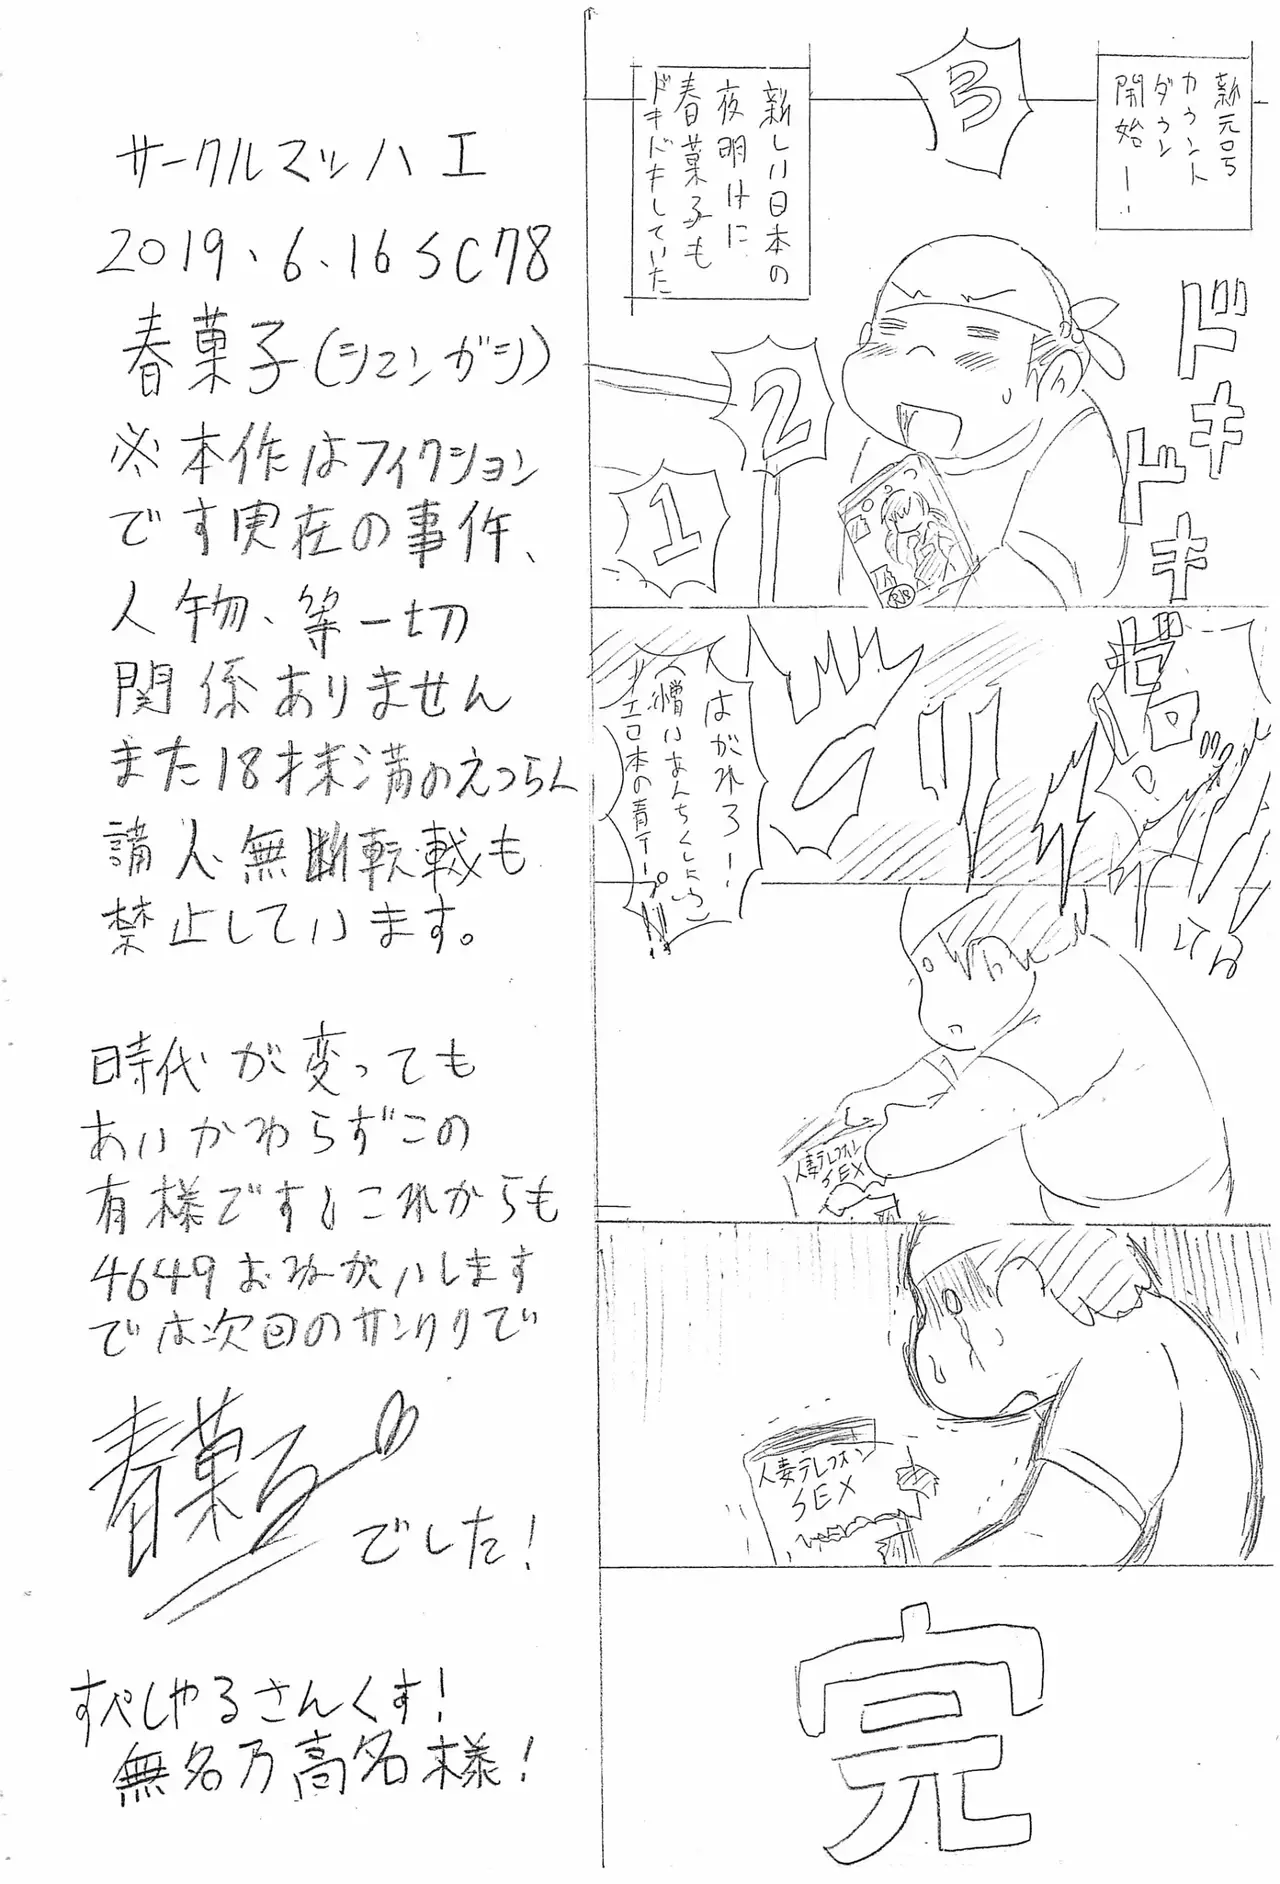 新元号
カウント
ダウン
開始ー!
3
新しい日本の
夜明けに
春菓子も
ドキドキしていた
ドキ
ドキ
2
1
R18
はがれろー!
(憎いあんちくしょう)
エロ本の青テープ!!
人妻テレフォン
SEX
人妻テレフォン
SEX
完
サークルマッハ工
2019、6、16 SC78
春菓子(シュンガシ)
※本作はフィクション
です実在の事件、
人物、等一切
関係ありません
また18才未満のえつらん
購入、無断転載も
禁止しています。
時代が変っても
あいかわらずこの
有様です!これからも
4649おねがいします
では次回のサンクリで
春菓子
でした!
すぺしゃるさんくす!
無名乃高名様!